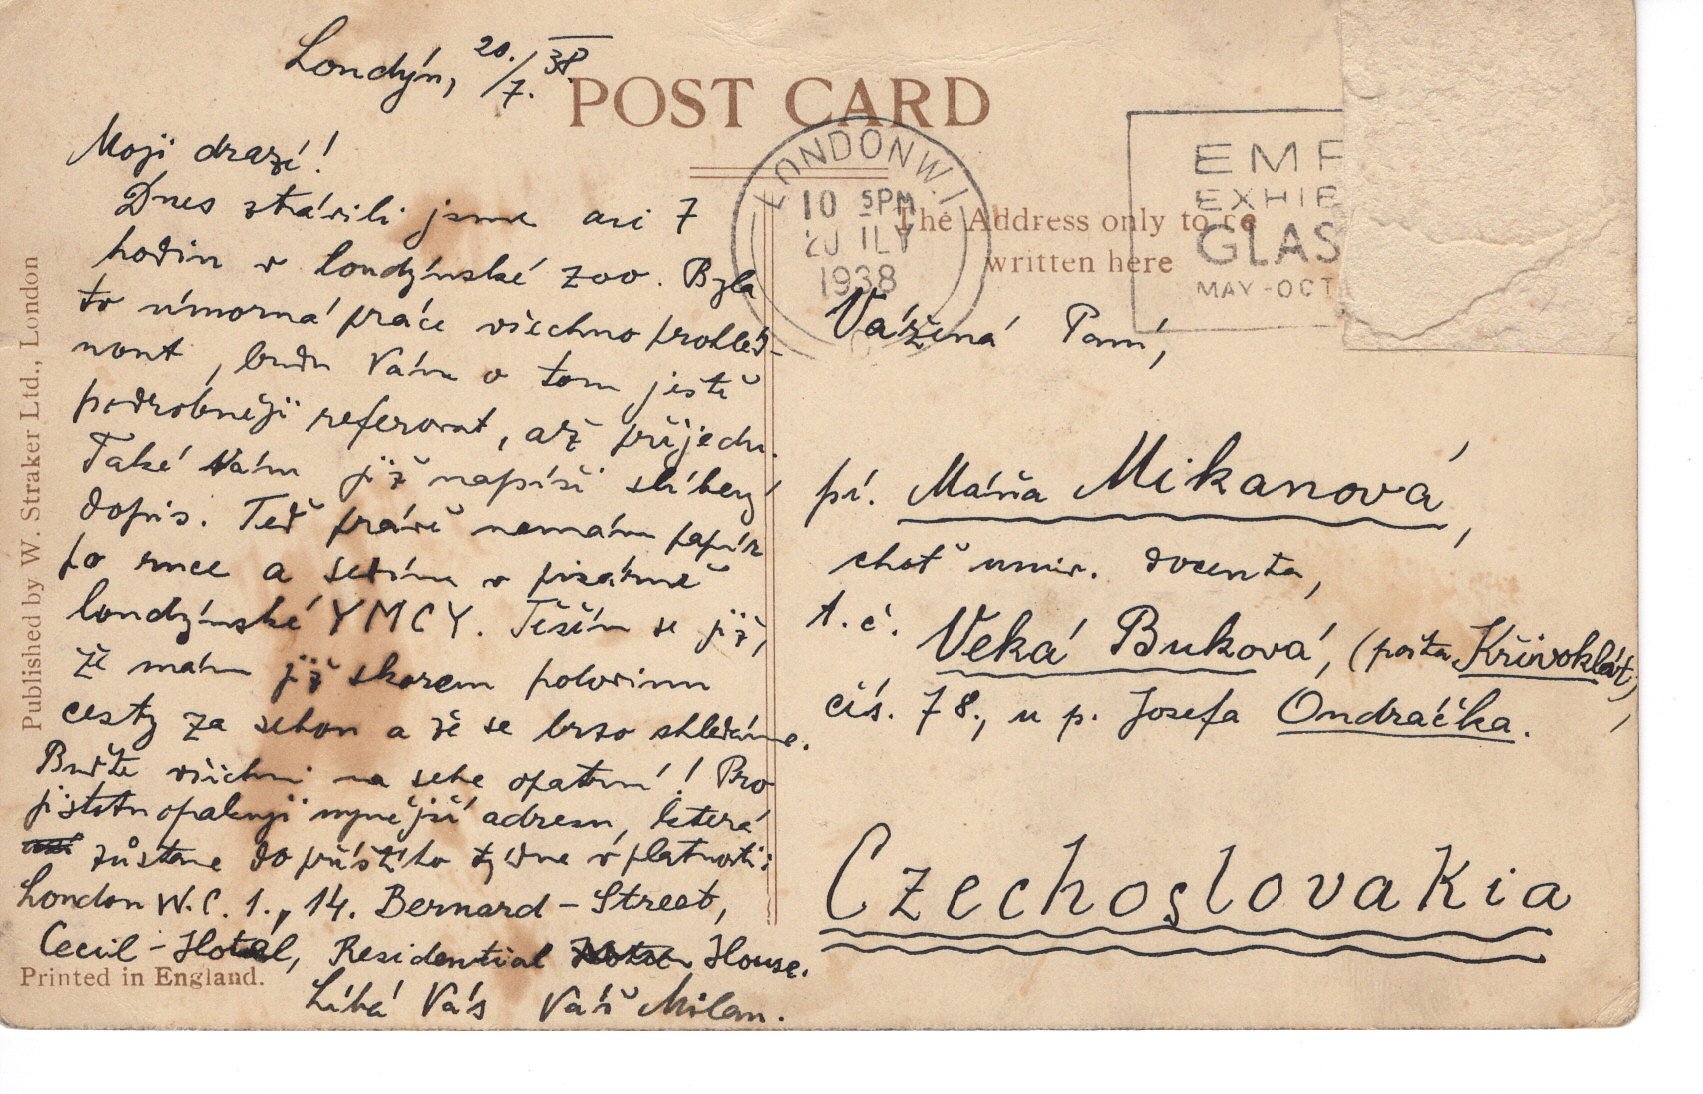 Londýn, 20./7. 38.
POST CARD
Moji drazí!
Dnes strávili jsme asi 7
hodin v londýnské zoo. Byla
to úmorná práce všechno prohléd-
nout, budu Vám o tom ještě
podrobněji referovat, až přijedu.
Také Vám již napíši slíbený
dopis. Teď právě nemám papír
po ruce a sedím v písárně
londýnské YMCY. Těším se již,
že mám již skorem polovinu
cesty za sebou a že se brzo shledáme.
Buďte všichni na sebe opatrní! Pro
jistotu opakuji nynější adresu, která
zůstane do příštího týdne v platnosti:
London W.C. 1., 14. Bernard-Street,
Cecil-Hotel, Residential House.
Líbá Vás Váš Milan.
Published by W. Straker Ltd., London
Printed in England.
LONDON W.1
10 5PM
20 JLY
1938
EMP
EXHIB
GLAS
MAY-OCT
The Address only to be
written here
Vážená Paní,
pí. Máňa Mikanová,
choť univ. docenta,
t. č. Veká Buková, (pošta Křivoklát),
čís. 78., u p. Josefa Ondráčka.
Czechoslovakia